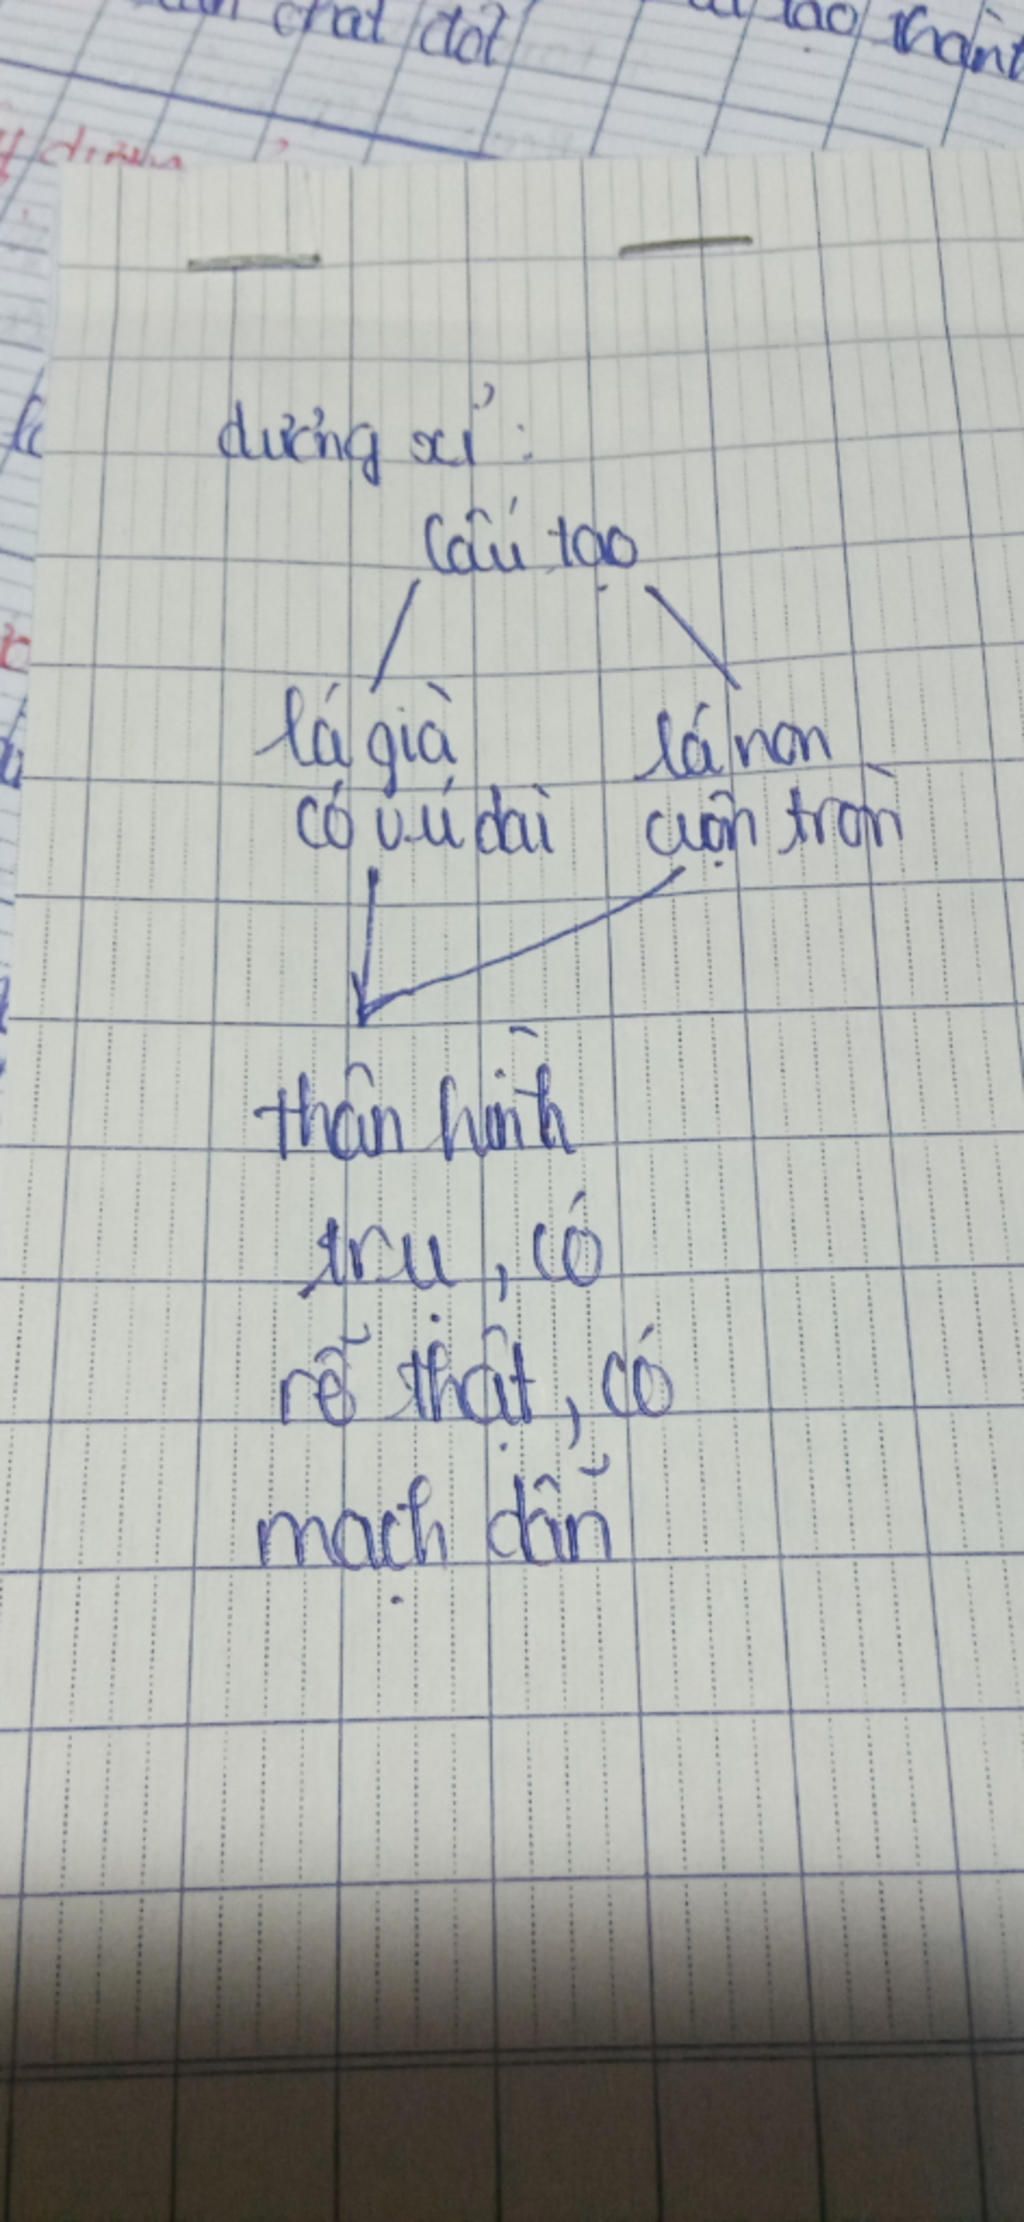 chất đốt
tạo thành
dương xỉ:
Cấu tạo
lá già
lá non
có v.ú dài
cuộn tròn
thân hình
trụ, có
rễ thật, có
mạch dẫn